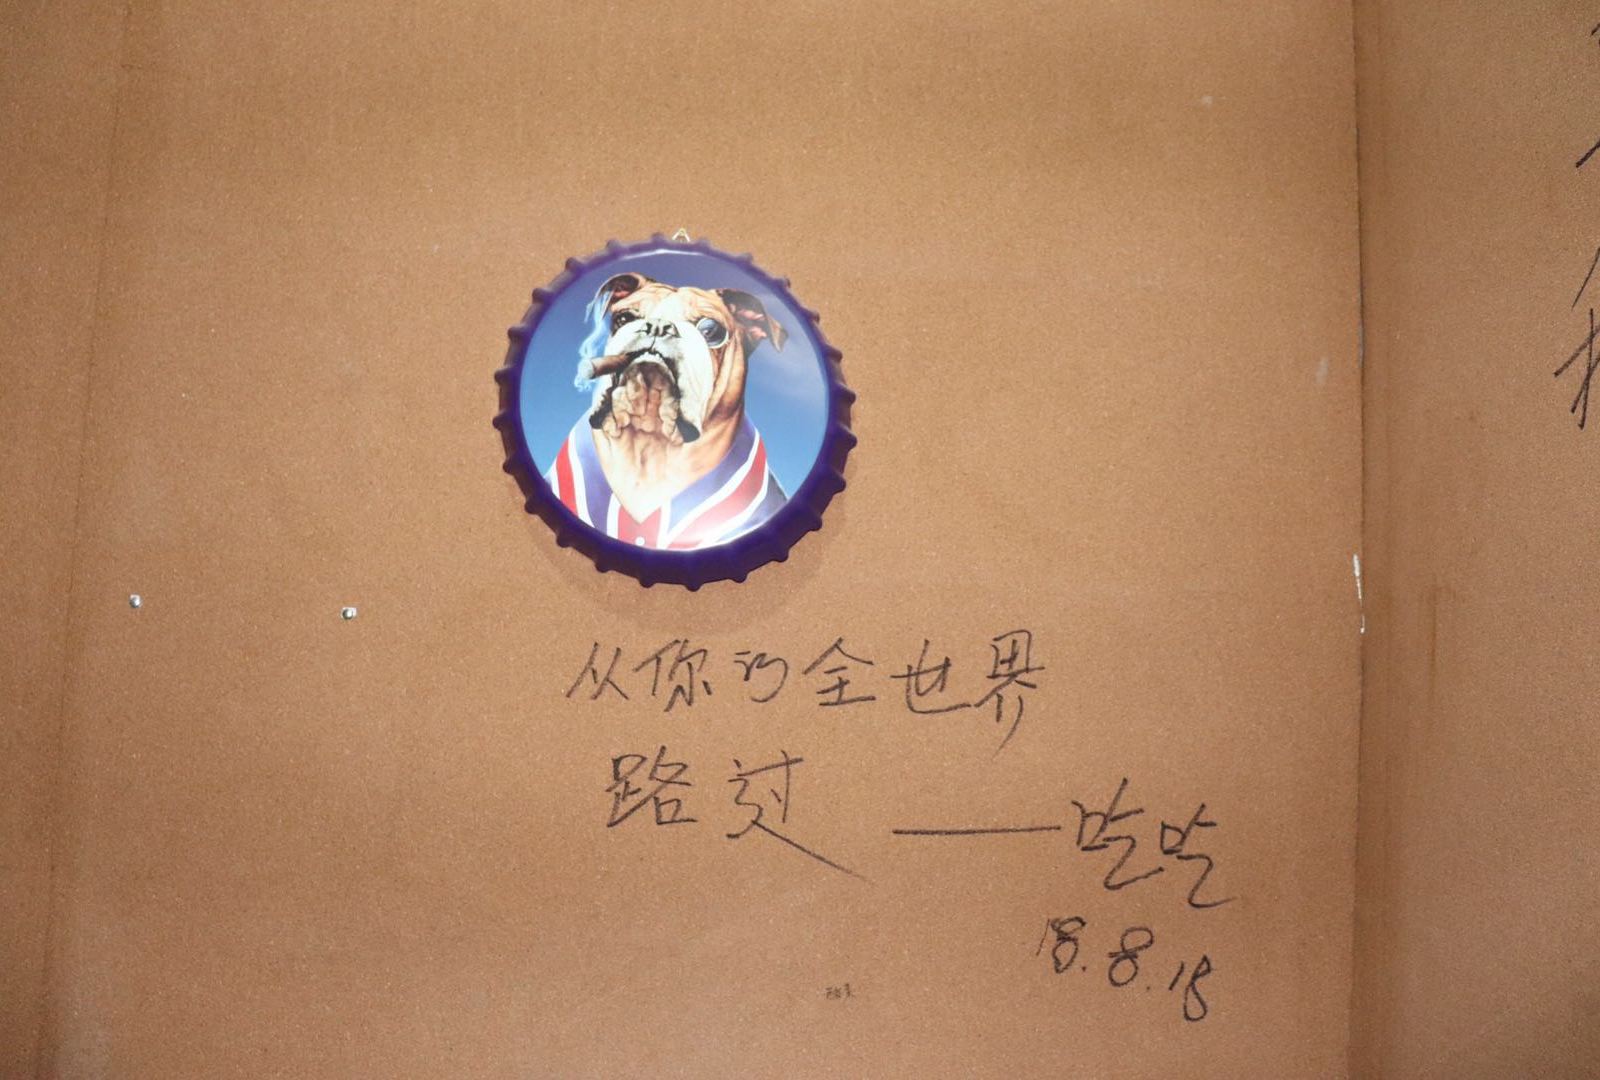 从你的全世界
路过 ——吣吣
18.8.18